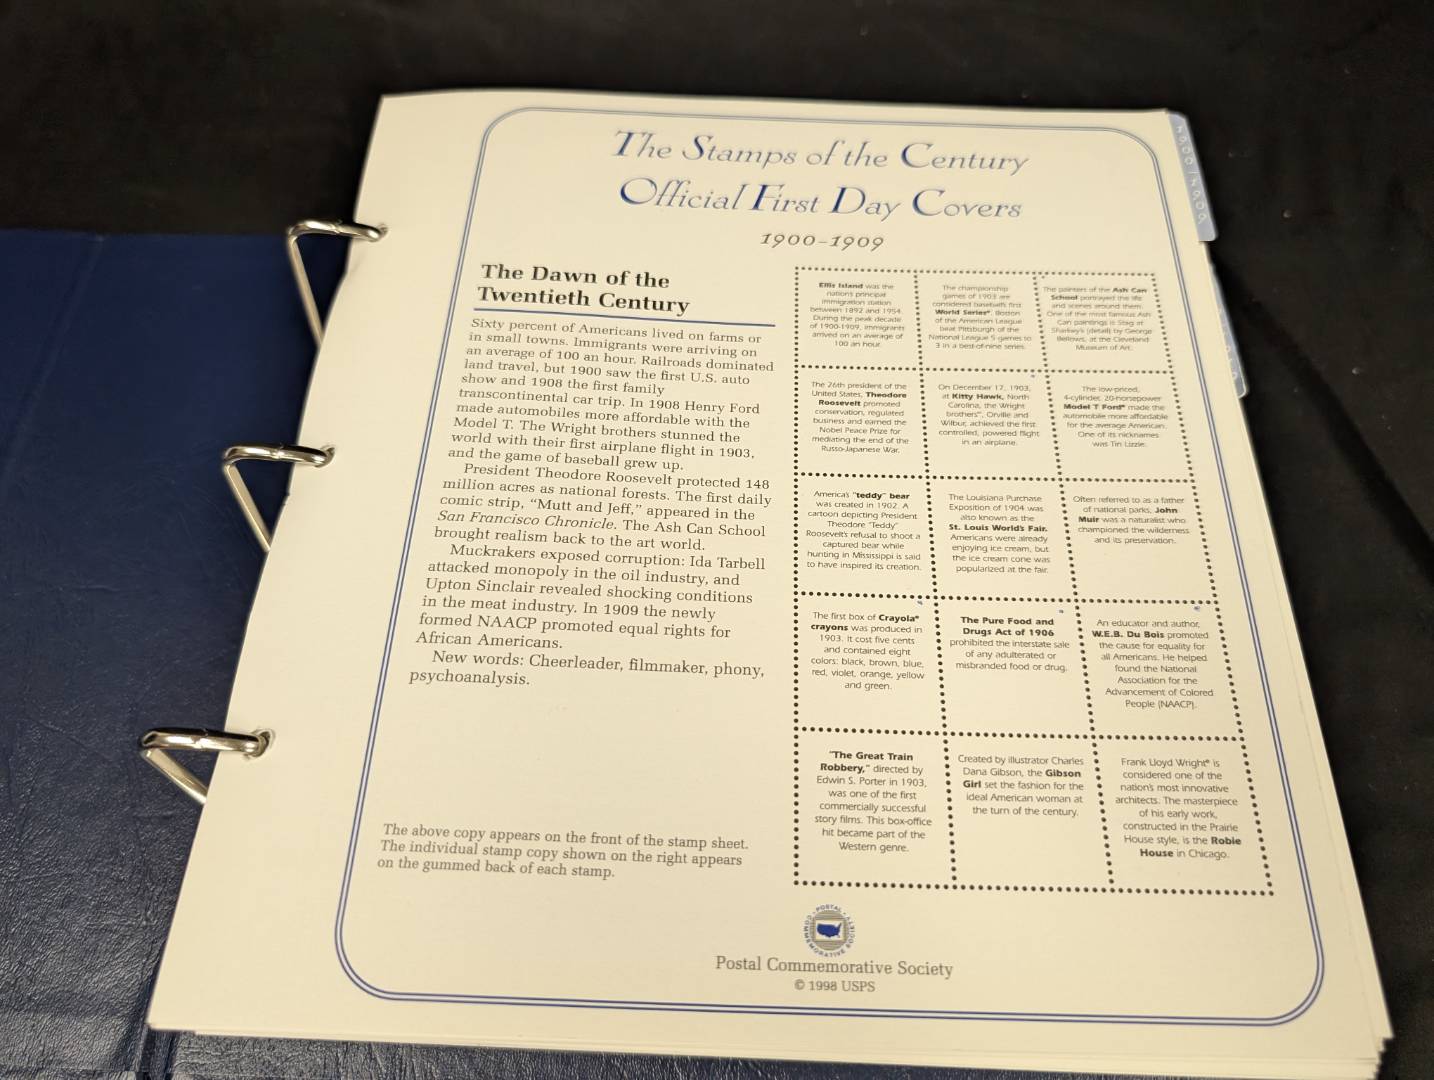 The Stamps of the Century
Official First Day Covers
1900-1909
1900-1909
The Dawn of the
Twentieth Century
Sixty percent of Americans lived on farms or
in small towns. Immigrants were arriving on
an average of 100 an hour. Railroads dominated
land travel, but 1900 saw the first U.S. auto
show and 1908 the first family
transcontinental car trip. In 1908 Henry Ford
made automobiles more affordable with the
Model T. The Wright brothers stunned the
world with their first airplane flight in 1903,
and the game of baseball grew up.
President Theodore Roosevelt protected 148
million acres as national forests. The first daily
comic strip, “Mutt and Jeff,” appeared in the
San Francisco Chronicle. The Ash Can School
brought realism back to the art world.
Muckrakers exposed corruption: Ida Tarbell
attacked monopoly in the oil industry, and
Upton Sinclair revealed shocking conditions
in the meat industry. In 1909 the newly
formed NAACP promoted equal rights for
African Americans.
New words: Cheerleader, filmmaker, phony,
psychoanalysis.
The above copy appears on the front of the stamp sheet.
The individual stamp copy shown on the right appears
on the gummed back of each stamp.
Ellis Island was the
nation's principal
immigration station
between 1892 and 1954.
During the peak decade
of 1900-1909, immigrants
arrived on an average of
100 an hour.
The championship
games of 1903 are
considered baseball's first
World Series®. Boston
of the American League
beat Pittsburgh of the
National League 5 games to
3 in a best-of-nine series.
The painters of the Ash Can
School portrayed the life
and scenes around them.
One of the most famous Ash
Can paintings is Stag at
Sharkey's (detail) by George
Bellows, at the Cleveland
Museum of Art.
The 26th president of the
United States, Theodore
Roosevelt promoted
conservation, regulated
business and earned the
Nobel Peace Prize for
mediating the end of the
Russo-Japanese War.
On December 17, 1903,
at Kitty Hawk, North
Carolina, the Wright
brothers™, Orville and
Wilbur, achieved the first
controlled, powered flight
in an airplane.
The low-priced,
4-cylinder, 20-horsepower
Model T Ford® made the
automobile more affordable
for the average American.
One of its nicknames
was Tin Lizzie.
America's "teddy" bear
was created in 1902. A
cartoon depicting President
Theodore "Teddy"
Roosevelt's refusal to shoot a
captured bear while
hunting in Mississippi is said
to have inspired its creation.
The Louisiana Purchase
Exposition of 1904 was
also known as the
St. Louis World's Fair.
Americans were already
enjoying ice cream, but
the ice cream cone was
popularized at the fair.
Often referred to as a father
of national parks, John
Muir was a naturalist who
championed the wilderness
and its preservation.
The first box of Crayola®
crayons was produced in
1903. It cost five cents
and contained eight
colors: black, brown, blue,
red, violet, orange, yellow
and green.
The Pure Food and
Drugs Act of 1906
prohibited the interstate sale
of any adulterated or
misbranded food or drug.
An educator and author,
W.E.B. Du Bois promoted
the cause for equality for
all Americans. He helped
found the National
Association for the
Advancement of Colored
People (NAACP).
"The Great Train
Robbery," directed by
Edwin S. Porter in 1903,
was one of the first
commercially successful
story films. This box-office
hit became part of the
Western genre.
Created by illustrator Charles
Dana Gibson, the Gibson
Girl set the fashion for the
ideal American woman at
the turn of the century.
Frank Lloyd Wright® is
considered one of the
nation's most innovative
architects. The masterpiece
of his early work,
constructed in the Prairie
House style, is the Robie
House in Chicago.
POSTAL COMMEMORATIVE SOCIETY
Postal Commemorative Society
© 1998 USPS